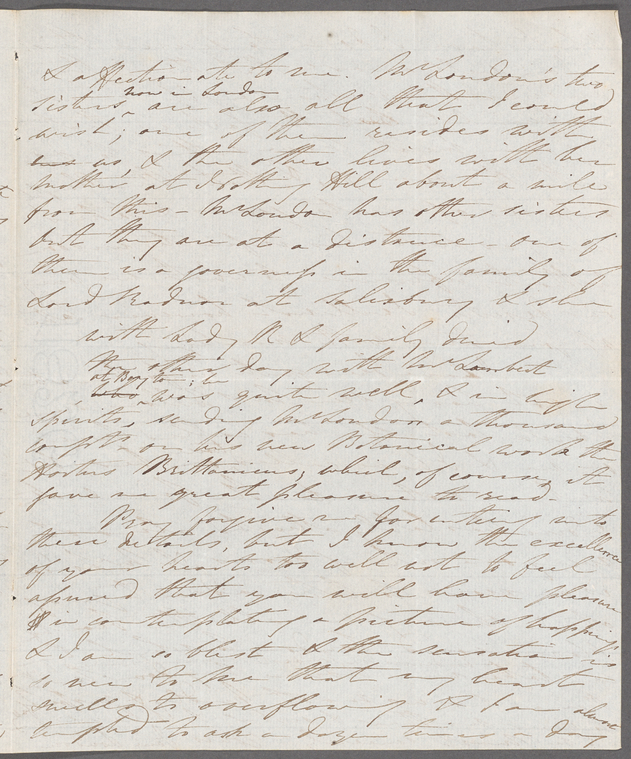 & affectionate to me. Mr Loudon's two
now in London
sisters are also all that I could
wish; one of them resides with
us, & the other lives with her
mother at Notting Hill about a mile
from this – Mr Loudon has other sisters
but they are at a distance – one of
them is a governess in the family of
Lord Radnor at Salisbury & she
with Lady R & family dined
the other day with Mr Lambert
at Boyton; he
was quite well, & in high
spirits, sending Mr Loudon a thousand
compts. on his new Botanical work the
Hortus Brittanicus; which, of course, it
gave me great pleasure to read.
Pray forgive me for entering into
these details, but I know the excellence
of your hearts too well not to feel
assured that you will have pleasure
in contemplating a picture of happiness
& I am so blest & the sensation is
so new to me that my heart
swells to overflowing & I am almost
tempted to ask a dozen times a day